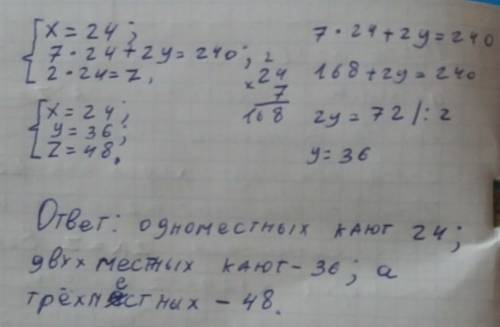 x = 24;
7·24+2y=240;
2·24=z,
x = 24;
y = 36;
z = 48.
2
24
× 7
168
7·24+2y=240
168+2y=240
2y = 72 /:2
y = 36
Ответ: одноместных кают 24;
двухместных кают - 36; а
трёхместных - 48.